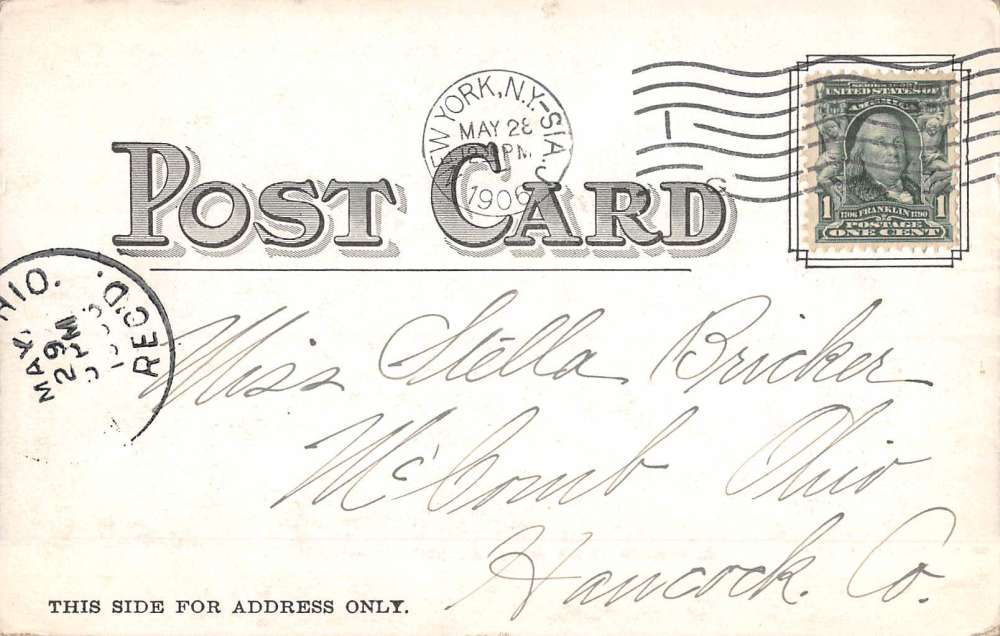 NEW YORK, N.Y.-STA. J
MAY 28
PM
1906
POST CARD
SERIES 1902
UNITED STATES OF
AMERICA
1 1706 FRANKLIN 1790 1
POSTAGE
ONE CENT
OHIO.
MAY
29
PM
REC'D.
Miss Stella Bricker
McComb Ohio
Hancock. Co.
THIS SIDE FOR ADDRESS ONLY.